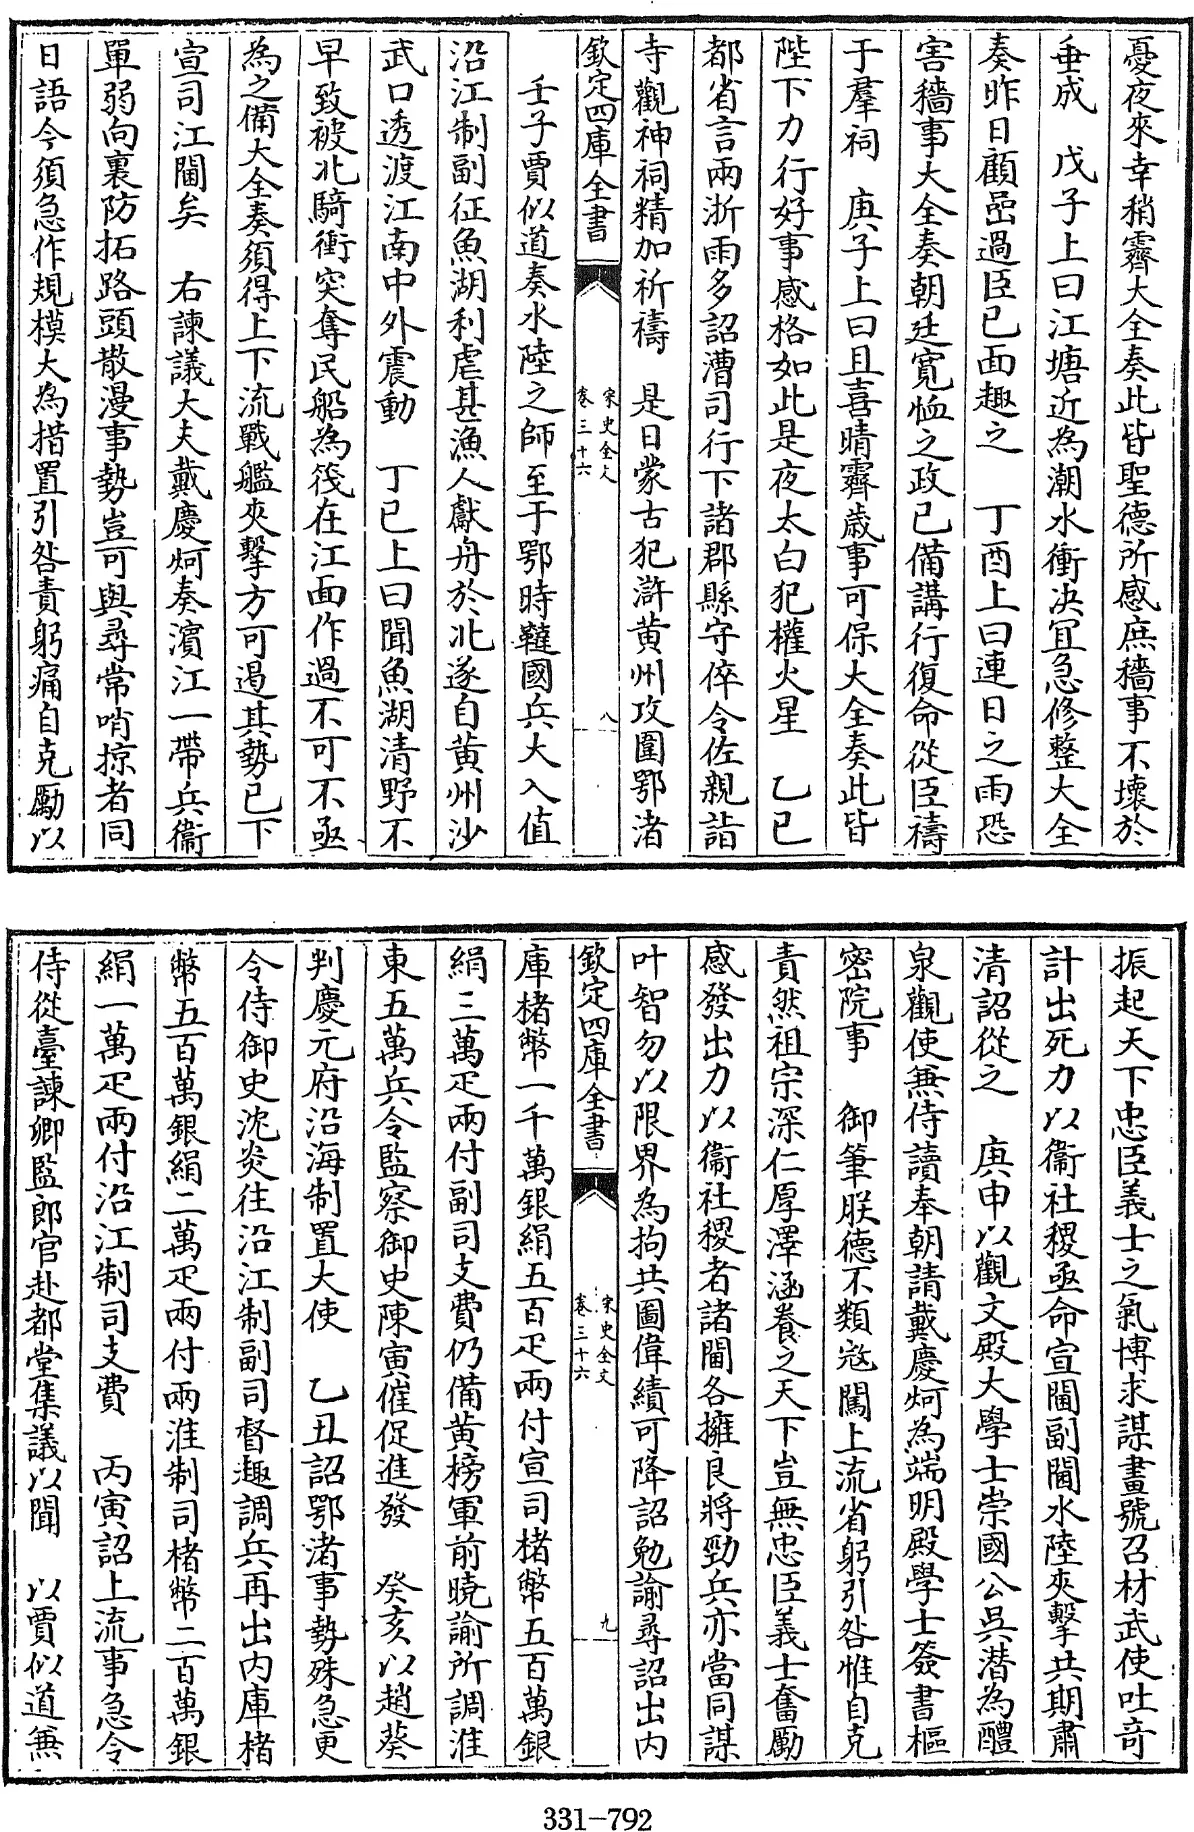 憂夜來幸稍霽大全奏此皆聖德所感庶穡事不壞於
垂成　戊子上曰江塘近為潮水衝決宜急修整大全
奏昨日顧嵒過臣已面趣之　丁酉上曰連日之雨恐
害穡事大全奏朝廷寛恤之政已備講行復命從臣禱
于羣祠　庚子上曰且喜晴霽歲事可保大全奏此皆
陛下力行好事感格如此是夜太白犯權火星　乙巳
都省言兩浙雨多詔漕司行下諸郡縣守倅令佐親詣
寺觀神祠精加祈禱　是日蒙古犯滸黄州攻圍鄂渚
欽定四庫全書
宋史全文
卷三十六
八
壬子賈似道奏水陸之師至于鄂時韃國兵大入值
沿江制副征魚湖利虐甚漁人獻舟於北遂自黄州沙
武口透渡江南中外震動　丁巳上曰聞魚湖清野不
早致被北騎衝突奪民船為筏在江面作過不可不亟
為之備大全奏須得上下流戰艦夾擊方可遏其勢已下
宣司江閫矣　右諫議大夫戴慶炣奏濵江一帶兵衞
單弱向裏防拓路頭散漫事勢豈可與尋常哨掠者同
日語今須急作規模大為措置引咎責躬痛自克勵以
振起天下忠臣義士之氣博求謀畫號召材武使吐竒
計出死力以衞社稷亟命宣閫副閫水陸夾擊共期肅
清詔從之　庚申以觀文殿大學士崇國公吳潛為醴
泉觀使兼侍讀奉朝請戴慶炣為端明殿學士簽書樞
密院事　御筆朕德不類宼闖上流省躬引咎惟自克
責然祖宗深仁厚澤涵養之天下豈無忠臣義士奮勵
感發出力以衞社稷者諸閫各擁良將勁兵亦當同謀
叶智勿以限界為拘共圖偉績可降詔勉諭尋詔出内
欽定四庫全書
宋史全文
卷三十六
九
庫楮幣一千萬銀絹五百疋兩付宣司楮幣五百萬銀
絹三萬疋兩付副司支費仍備黄榜軍前曉諭所調淮
東五萬兵令監察御史陳寅催促進發　癸亥以趙葵
判慶元府沿海制置大使　乙丑詔鄂渚事勢殊急更
令侍御史沈炎往沿江制副司督趣調兵再出内庫楮
幣五百萬銀絹二萬疋兩付兩淮制司楮幣二百萬銀
絹一萬疋兩付沿江制司支費　丙寅詔上流事急令
侍從臺諫卿監郎官赴都堂集議以聞　以賈似道兼
331-792